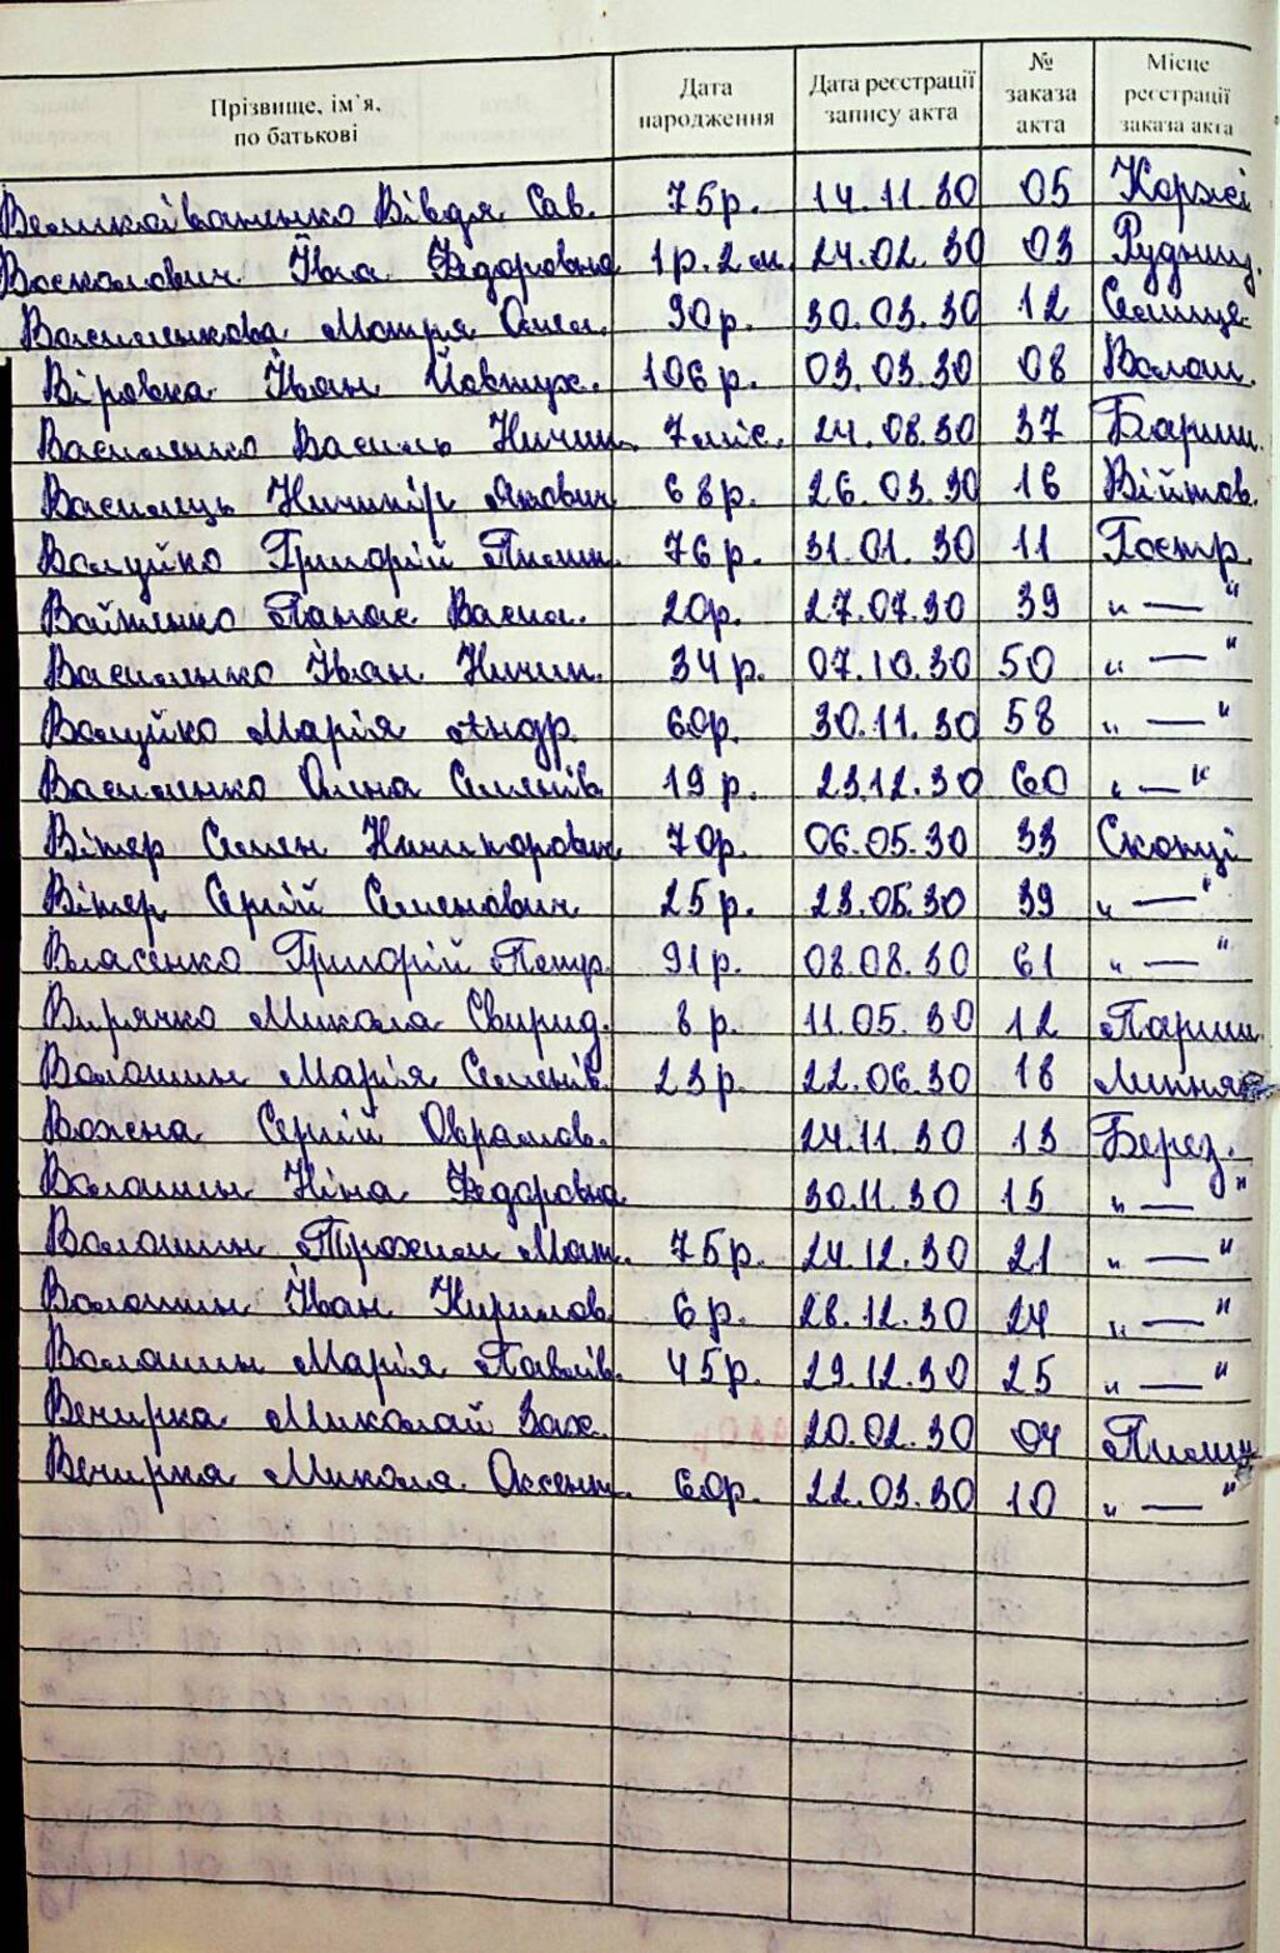 Прізвище, ім'я, по батькові | Дата народження | Дата реєстрації запису акта | № заказа акта | Місце реєстрації заказа акта
Великоіваненко Вівдя Сав. 75р. 14.11.30 05 Коржі
Воскалович Їва Федоровна 1р.2м. 24.02.30 03 Рудниц.
Василенкова Мотря Омел. 90р. 30.03.30 12 Селище
Віровка Іван Йовтух. 106р. 03.03.30 08 Волош.
Василенко Василь Ничип. 7міс. 24.08.30 37 Бариш.
Василець Ничипір Якович 68р. 26.03.30 16 Війтов.
Валуйко Григорій Пилип. 76р. 31.01.30 11 Гостр.
Войтенко Панас Васил. 20р. 27.07.30 39 "—"
Василенко Іван Ничип. 34р. 07.10.30 50 "—"
Валуйко Марія Андр. 60р. 30.11.30 58 "—"
Василенко Олена Семенів. 19р. 23.12.30 60 "—"
Вітер Семен Никипорович 70р. 06.05.30 33 Скопці
Вітер Сергій Семенович 25р. 23.05.30 39 "—"
Власенко Григорій Петр. 91р. 08.08.30 61 "—"
Вирячко Микола Свирид. 8р. 11.05.30 12 Париш.
Волошин Марія Семенів. 23р. 22.06.30 18 Липня
Вожена Сергій Оврамов. 24.11.30 13 Берез.
Волошин Ніна Федоровна 30.11.30 15 "—"
Волошин Трохим Мат. 75р. 24.12.30 21 "—"
Волошин Іван Кирилов. 6р. 28.12.30 24 "—"
Волошин Марія Павлів. 45р. 29.12.30 25 "—"
Вечирка Миколай Зах. 20.02.30 04
Вечирка Микола Оксент. 60р. 22.03.30 10 "—"